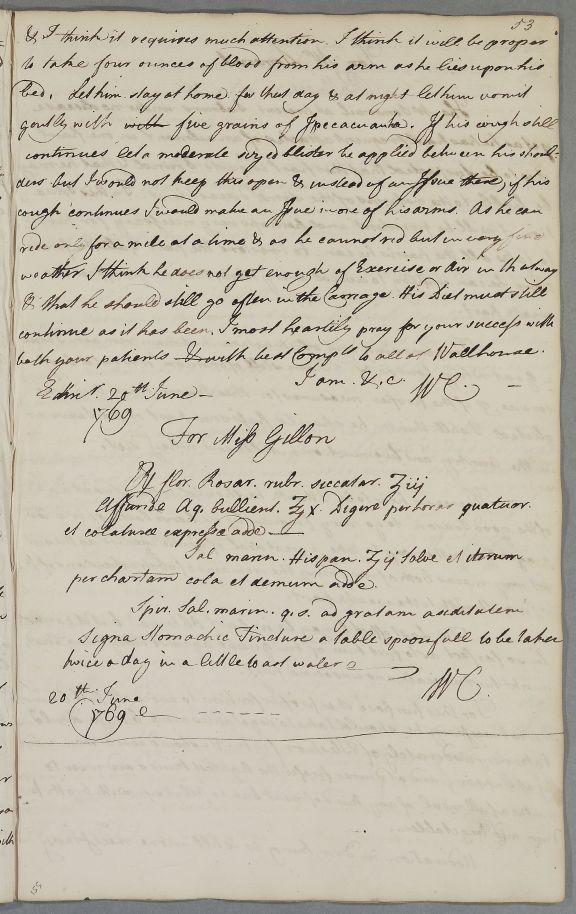 53
& I think it requires much attention. I think it will be proper
to take four ounces of blood from his arm as he lies upon his
bed. Let him stay at home for that day & at night let him vomit
gently with with five grains of Ipecacuanha. If his cough still
continues let a moderate sized blister be applied between his shoul-
ders but I would not keep this open & instead of an Issue there, if his
cough continues I would make an Issue in one of his arms. As he can
ride only for a mile at a time & as he cannot rid but in very fine
weather I think he does not get enough of Exercise or Air in that way
& that he should still go often in the Carriage. His Diet must still
continue as it has been. I most heartily pray for your success with
both your patients & with best Complts to all at Wallhouse.
I am. &.c. WC. —
Edinr. 20th June —
1769
For Miss Gillon
℞ flor. Rosar. rubr. siccatar. ʒiij
Affunde Aq. bullient. ℥x. Digere per horas quatuor.
et colaturæ expressæ adde —
Sal. marin. Hispan. ʒij Solve et iterum
per chartam cola et demum adde.
Spir. Sal. marin. q.s. ad gratam aciditatem
Signa Stomachic Tincture a table spoonfull to be taken
twice a day in a little toast water
WC.
20th June
1769